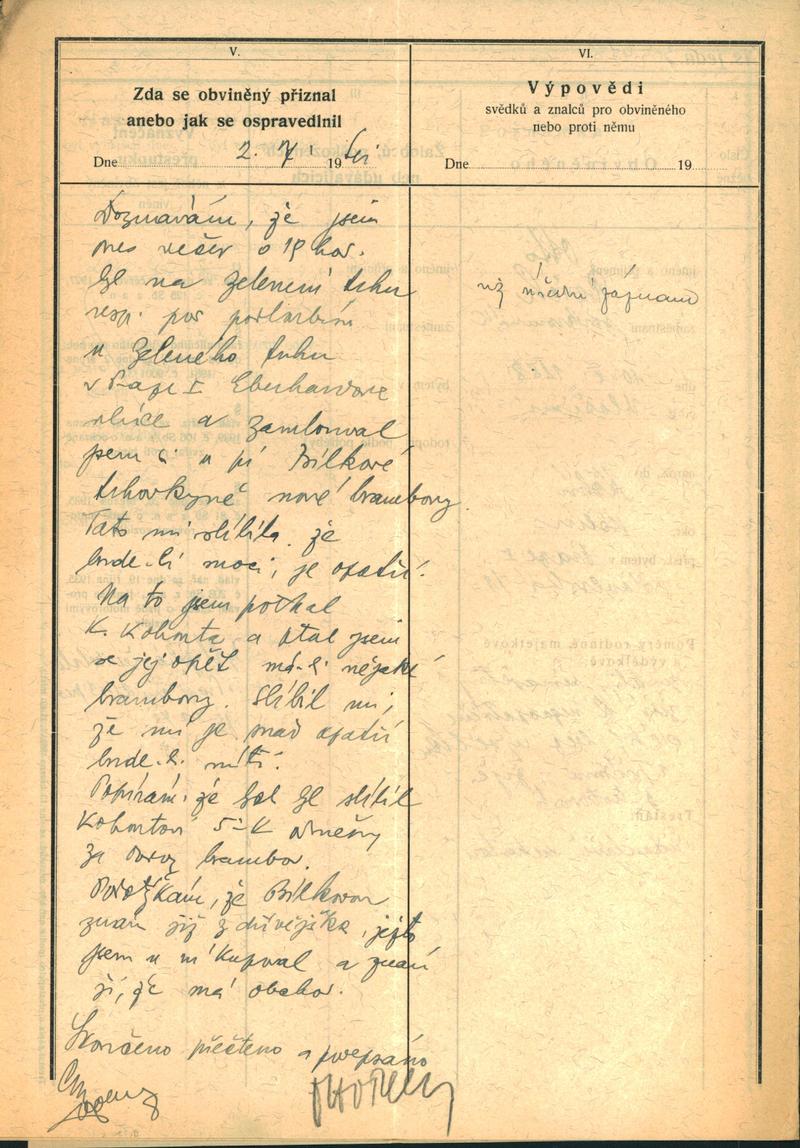 V.
Zda se obviněný přiznal
anebo jak se ospravedlnil
Dne 2. 7. 19
Doznávám, že jsem
dnes večer o 19 hod.
šel na Zelený trhu
resp. pod podloubím
u Zeleného trhu
v Praze I
ulice a zamlouval
jsem si u pí Bílkové
trhovkyně nové brambory.
Tato mi slíbila, že
bude-li moci, je opatří.
Na to jsem potkal
K. Kohouta a ptal jsem
se jej opět má-li nějaké
brambory. Slíbil mi,
že mi je snad opatří
bude-li míti.
Popírám, že bych byl slíbil
Kohoutovi 5 K odměny
za brambor.
Podotýkám, že Bílkovou
znám již z dřívějška, ježto
jsem u ní kupoval a znám
ji, že má obchod.
Skončeno přečteno a podepsáno
VI.
Výpovědi
svědků a znalců pro obviněného
nebo proti němu
Dne 19
viz úřední záznam